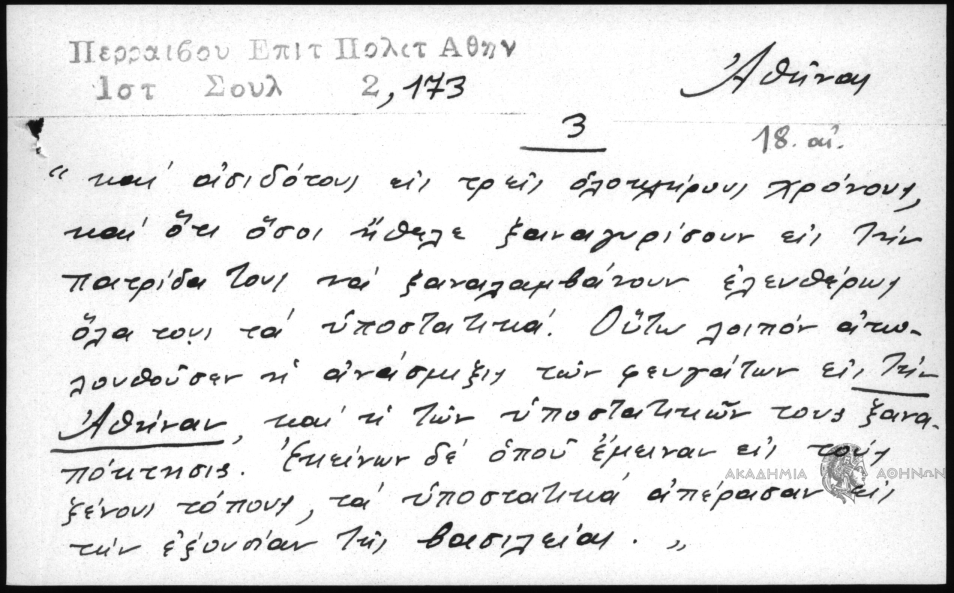 Περραιβου Επιτ Πολετ Αθην
Ιστ Σουλ 2, 173
Ἀθήναι
3
18. αἰ.
“ καί ἀσιδότους εἰς τρεῖς ὁλοκλήρους χρόνους,
καί ὅτι ὅσοι ἤθελε ξαναγυρίσουν εἰς τήν
πατρίδα τους νά ξαναλαμβάνουν ἐλευθέρως
ὅλα τους τά ὑποστατικά. Οὕτω λοιπόν ἀκο-
λουθοῦσεν ἡ ἀνάσμιξις τῶν φευγάτων εἰς τήν
Ἀθήναν, καί ἡ τῶν ὑποστατικῶν τους ξανα-
πόκτησις. Ἐκείνων δέ ὁποῦ ἔμειναν εἰς τούς
ξένους τόπους, τά ὑποστατικά ἀπέρασαν εἰς
τήν ἐξουσίαν τῆς βασιλείας. „
ΑΚΑΔΗΜΙΑ ΑΘΗΝΩΝ